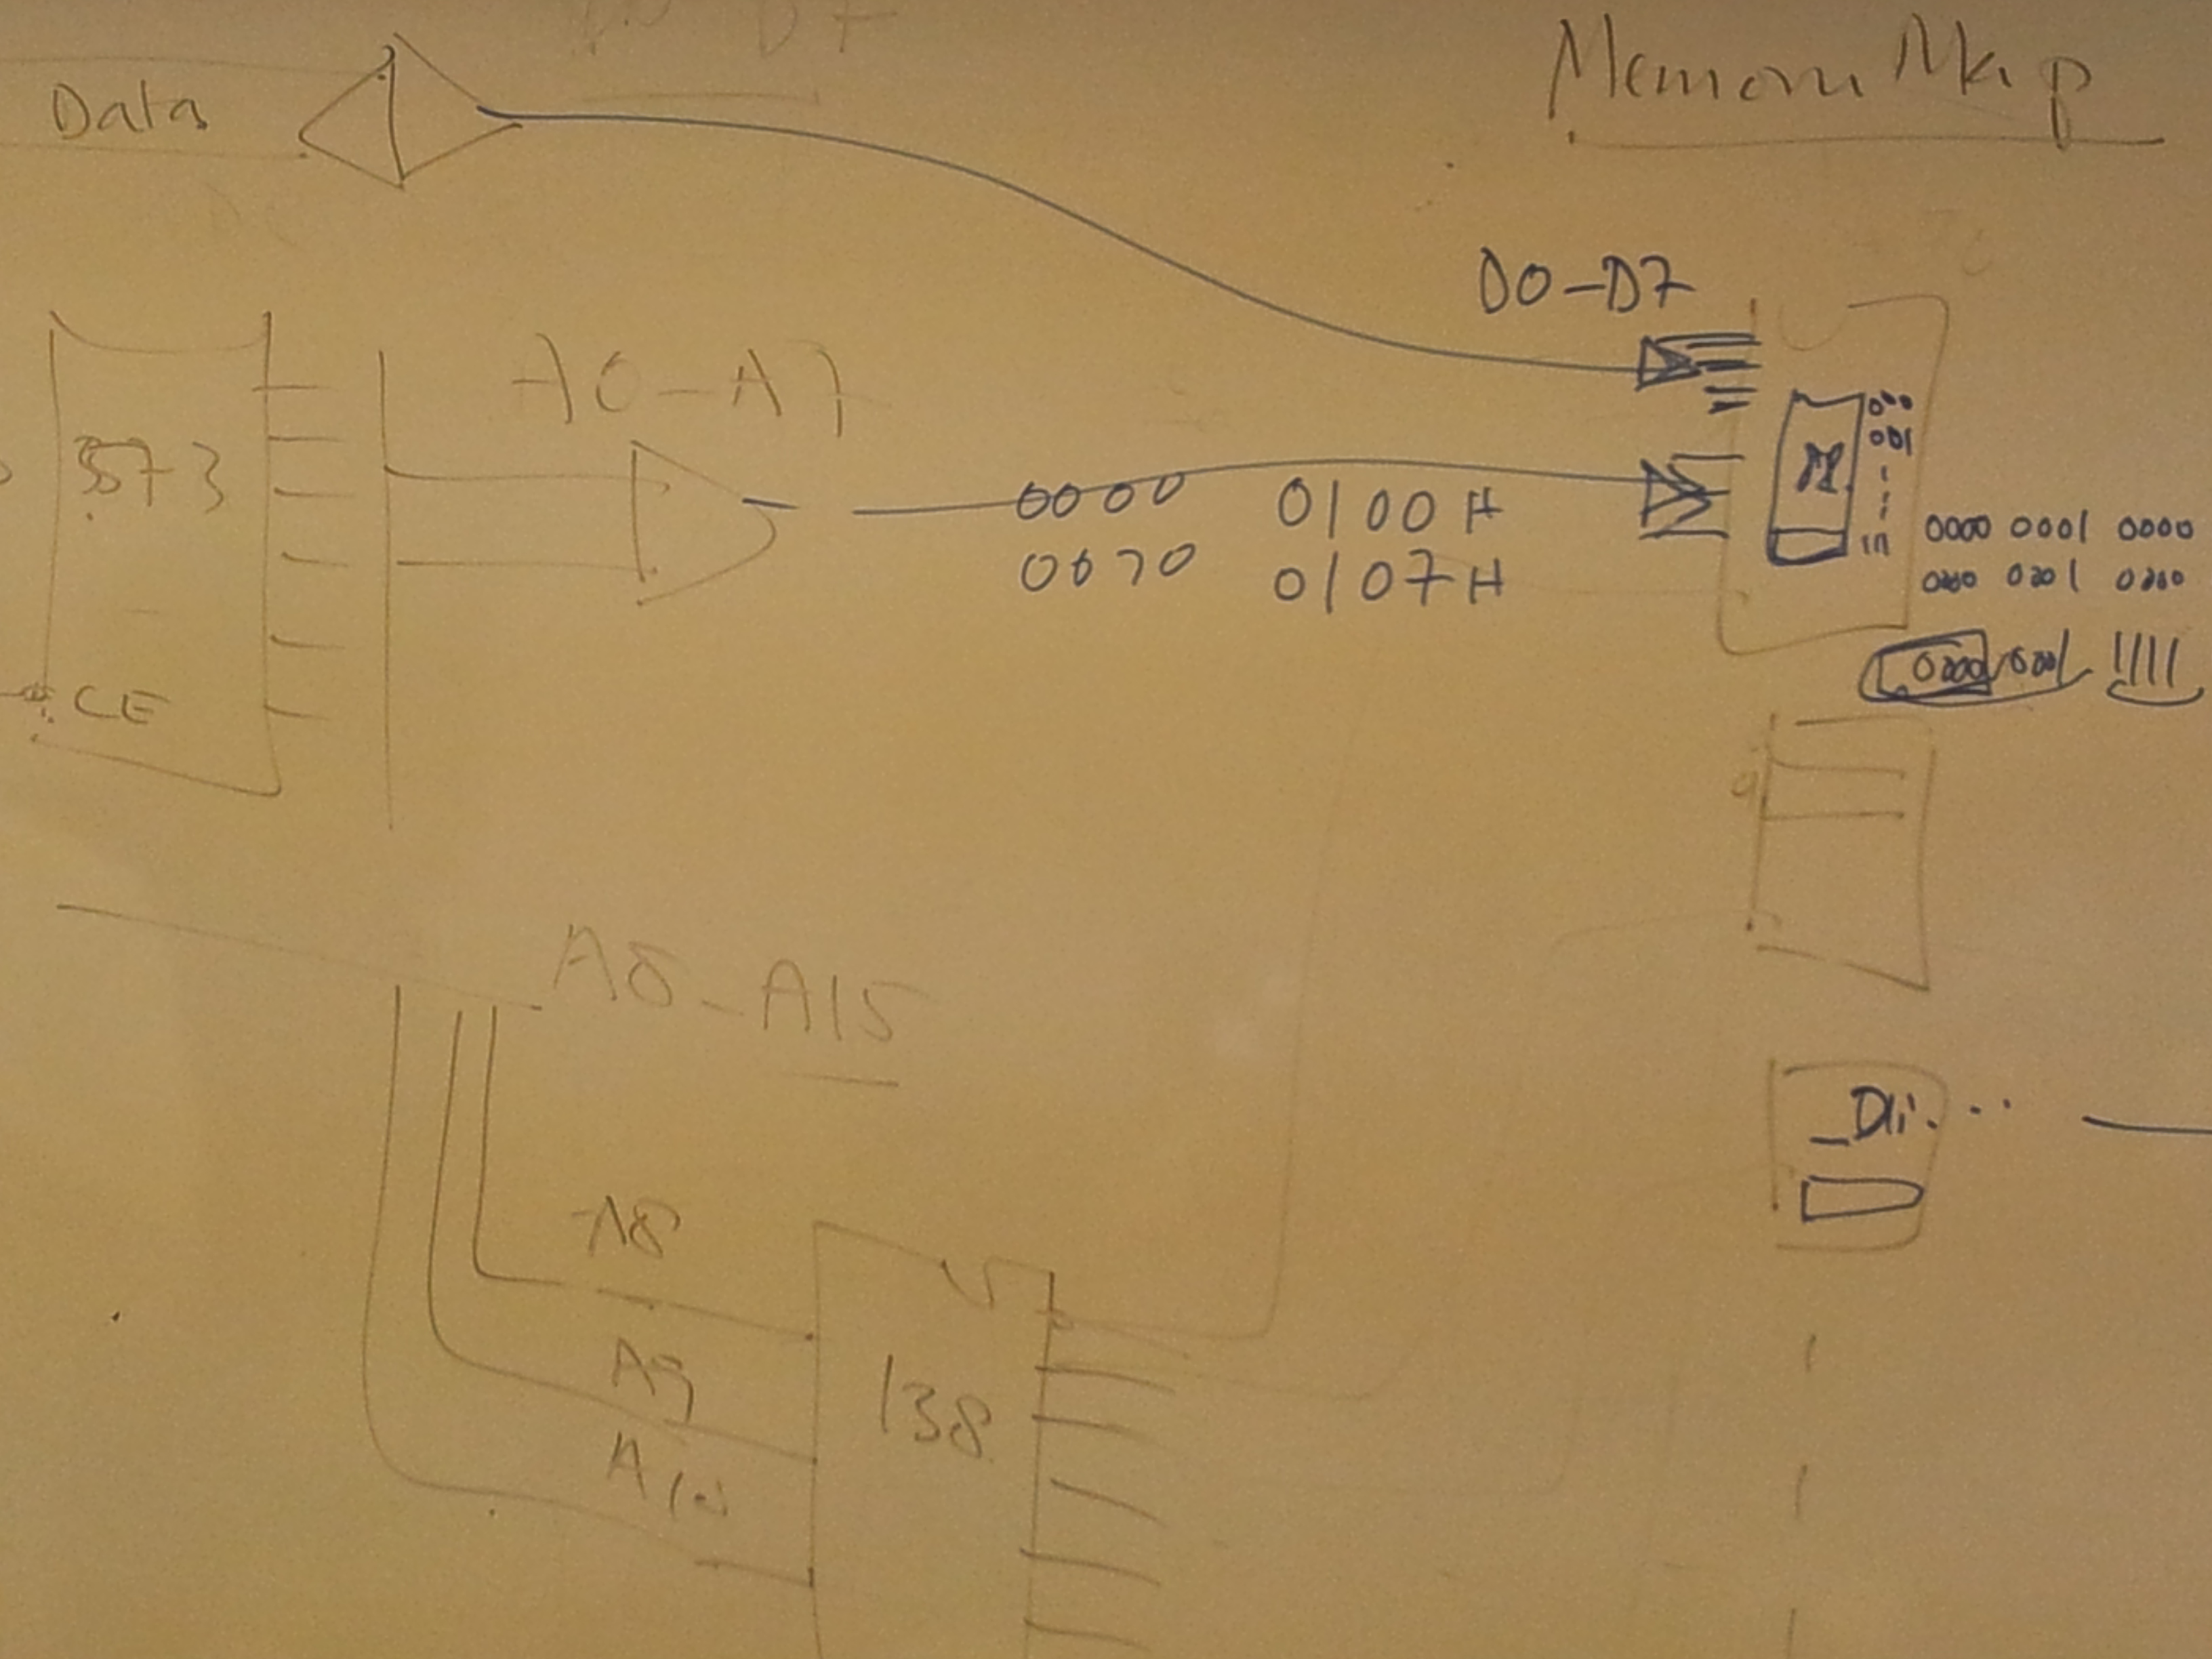 Memory Map
Data
D0-D7
A0-A7
573
000
001
0000 0100H
0070 0107H
111
0000 0001 0000
0000 0001 0000
0000 0001 1111
CE
A8-A15
_Dli...
A8
A9
138
A10